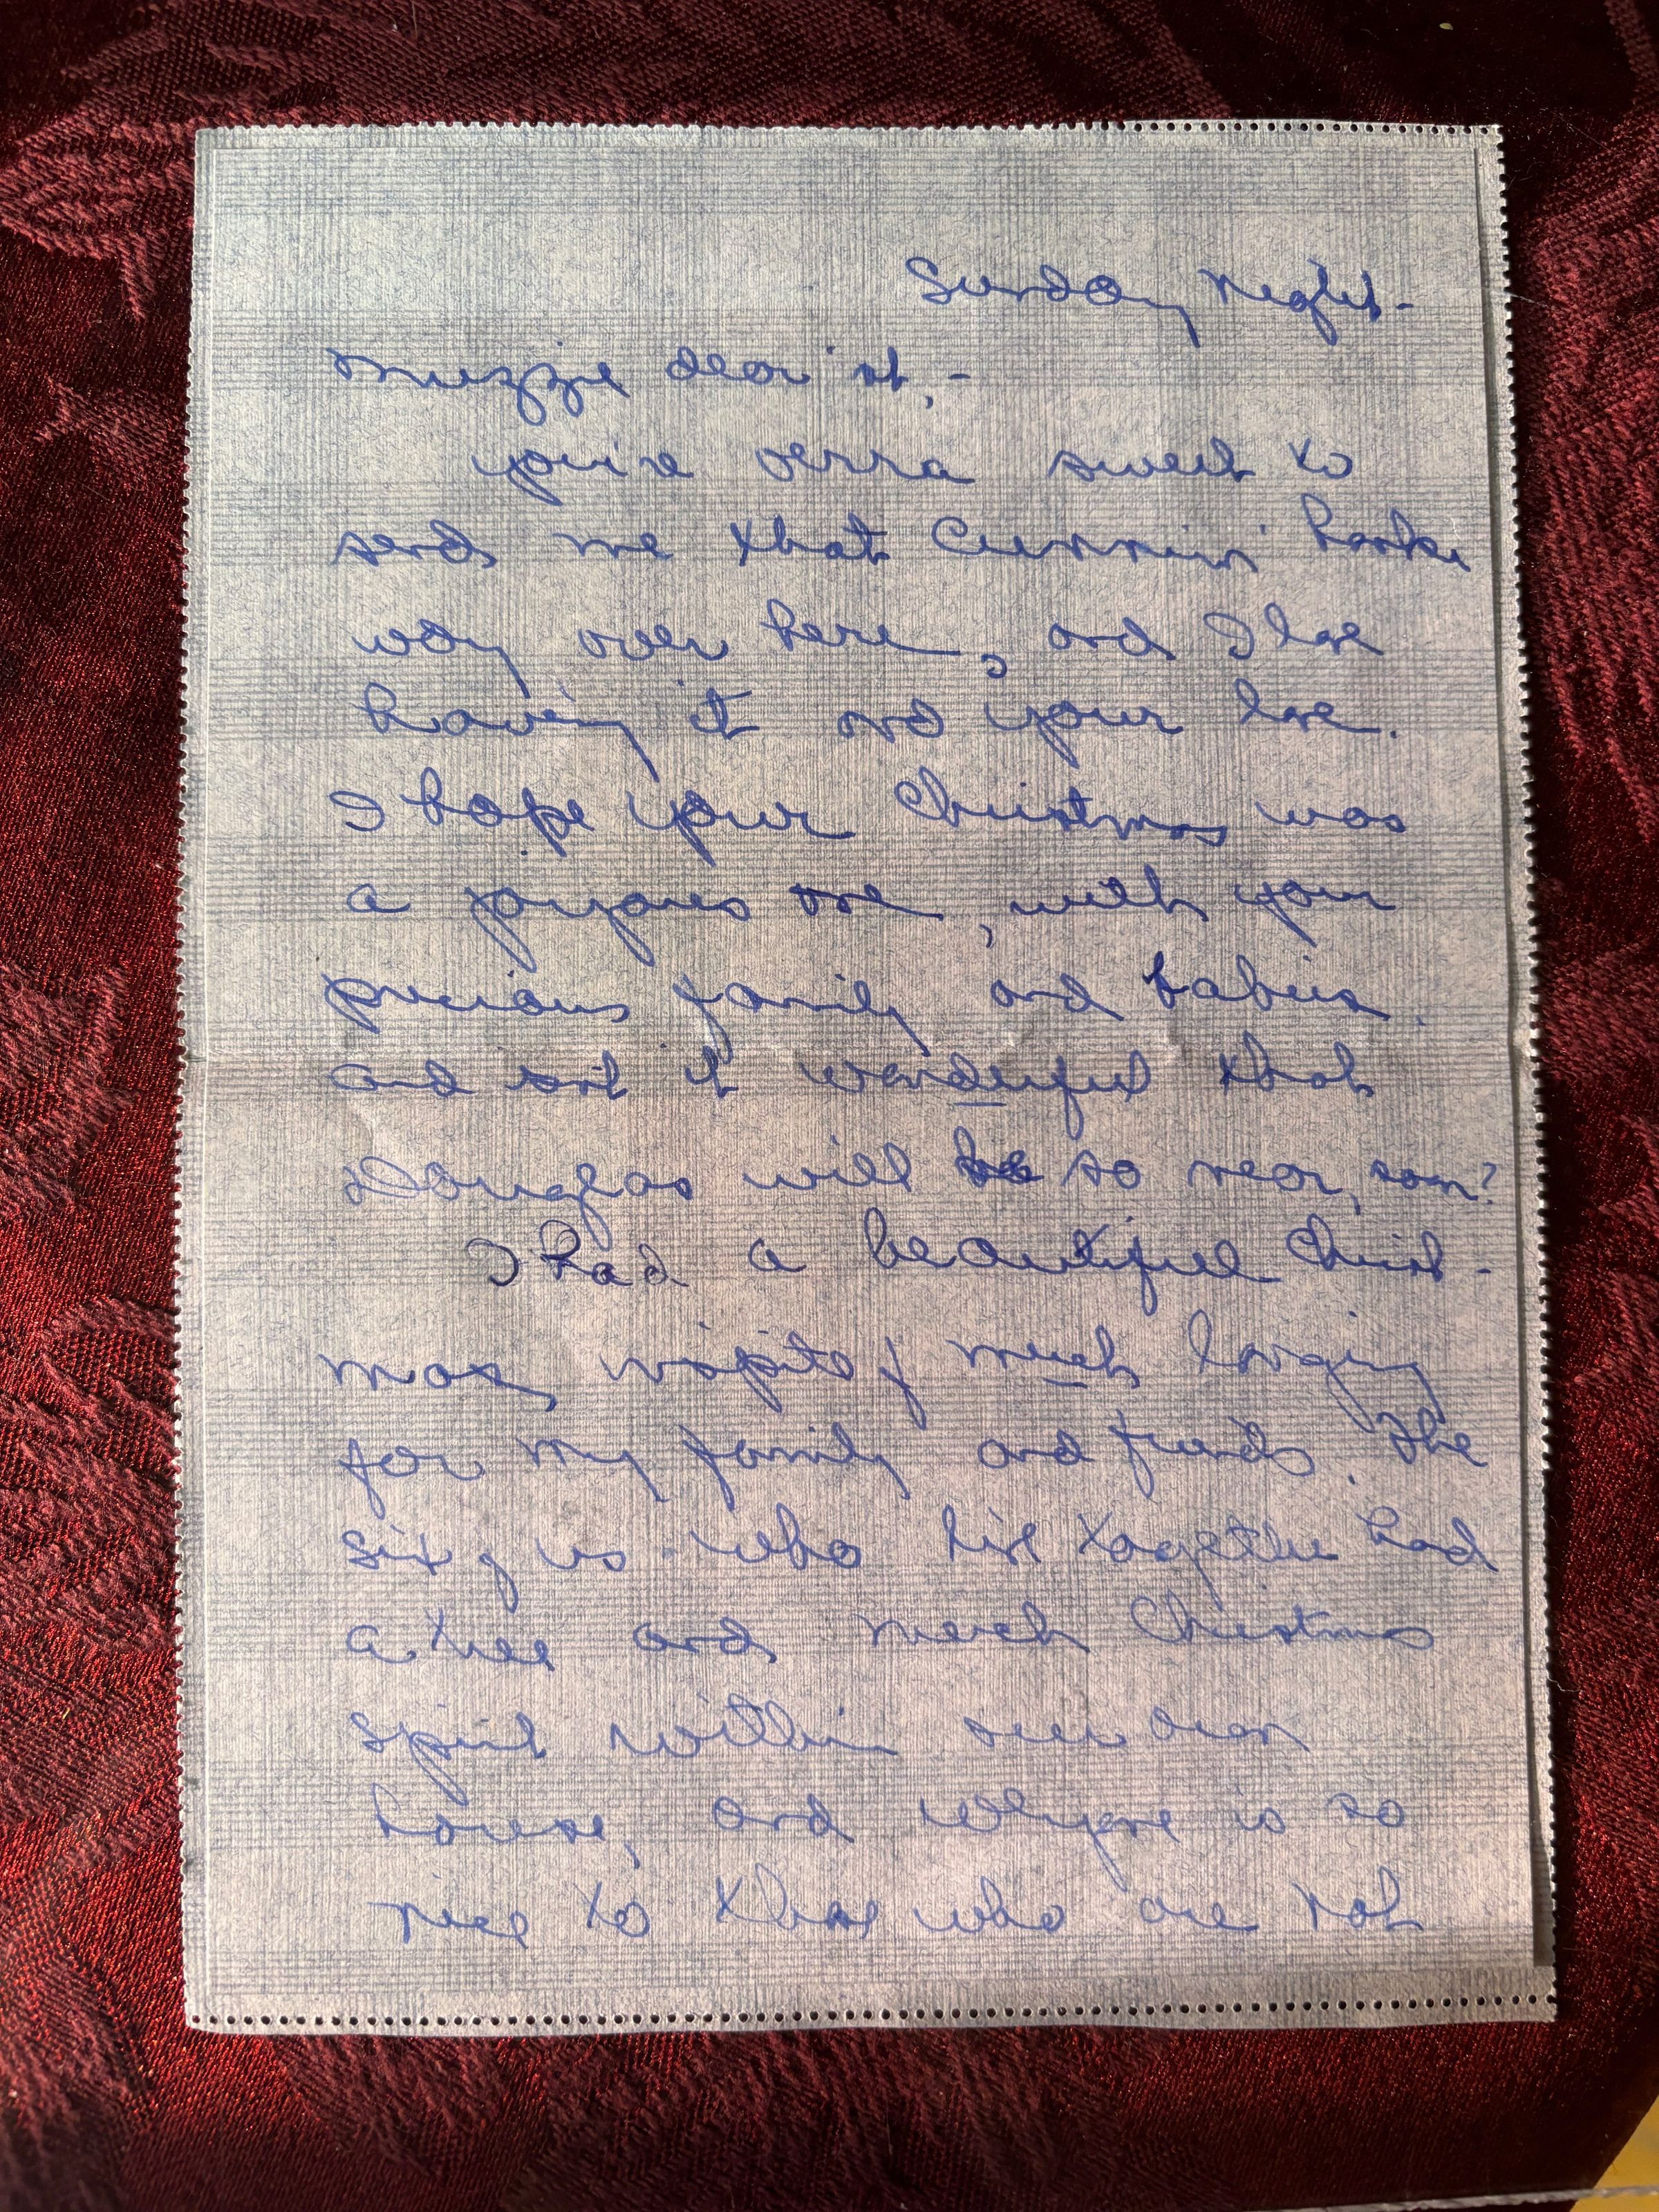 Sunday Night-
Muzzie dearist, -
you're verra sweet to
send me that Cunnin' hanky
way over here, and I love
having it and your love.
I hope your Christmas was
a joyous one, with your
precious family and babies.
and isn't it wonderful that
Douglas will be so near, soon?
I had a beautiful Christ-
mas, inspite of much longing
for my family and friends. The
six of us who live together had
a tree and much Christmas
spirit within our own
house, and everyone is so
nice to those who are not